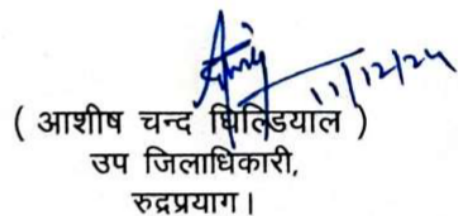 11/12/24
( आशीष चन्द घिल्डियाल )
उप जिलाधिकारी,
रुद्रप्रयाग।